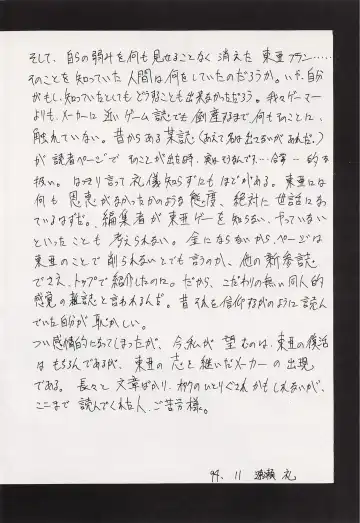 そして、自らの弱みを何も見せることなく消えた東亜プラン……
そのことを知っていた人間は何をしていたのだろうか。いや、自分
がもし、知っていたとしてもどうすることも出来なかっただろう。我々ゲーマー
よりも、メーカーに近いゲーム誌でも倒産するまで何もそのことに、
触れていない。昔からある某誌(あえて名は出さないがあれだ。)
が読者ページでそのことが出た時、
扱い。はっきり言って礼儀知らずにもほどがある。東亜には
何も恩恵がなかったかのような態度、絶対に世話になっ
ているはずだ。編集者が東亜ゲーを知らない、やっていない
といったことも考えられない。金にならないから、ページは
東亜のことで削られないとでも言うのか、他の新参誌
でさえ、トップで紹介したのに。だから、こだわりの無い同人的
感覚の雑誌と言われるんだ。昔それを信仰するがのように読ん
でいた自分が恥かしい。
つい感情的になってしまったが、今私が望むのは、東亜の復活
はもちろんであるが、東亜の志を継いだメーカーの出現
である。長々と文章ばかり、ボクのひとりぐされかもしれないが、
ここまで読んでくれた人、ご苦労様。
94. 11 瀬 礼